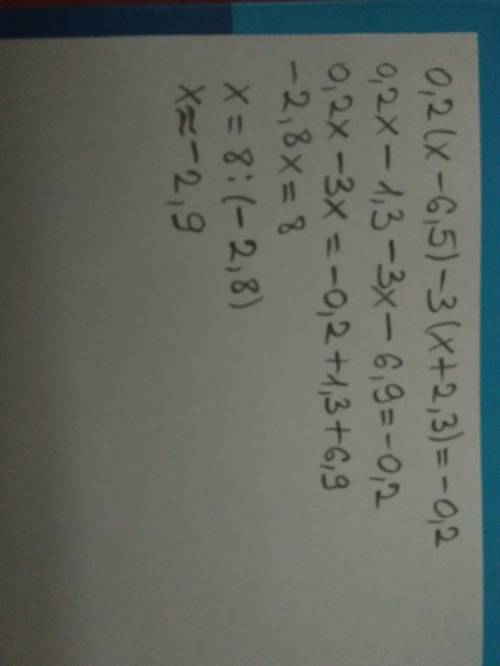 0,2(x-6,5)-3(x+2,3)=-0,2
0,2x-1,3-3x-6,9=-0,2
0,2x-3x=-0,2+1,3+6,9
-2,8x=8
x=8:(-2,8)
x≈-2,9